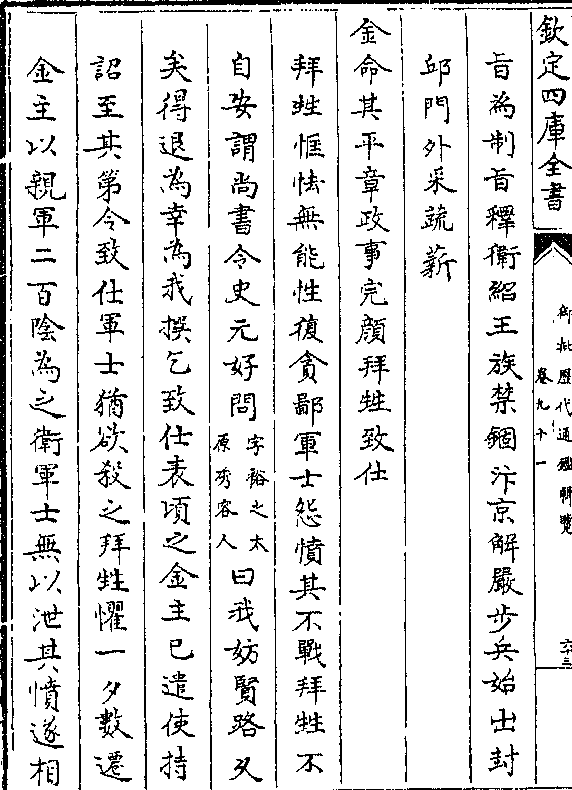 欽定四庫全書
御批歷代通鑑輯覽
卷九十一
六十三
旨為制旨釋衛紹王族禁錮汴京解嚴步兵始出封
邱門外采蔬薪
金命其平章政事完顏拜甡致仕
拜甡恇怯無能性復貪鄙軍士怨憤其不戰拜甡不
自安謂尚書令史元好問字裕之太原秀容人曰我妨賢路久
矣得退為幸為我撰乞致仕表頃之金主已遣使持
詔至其第令致仕軍士猶欲殺之拜甡懼一夕數遷
金主以親軍二百陰為之衛軍士無以泄其憤遂相